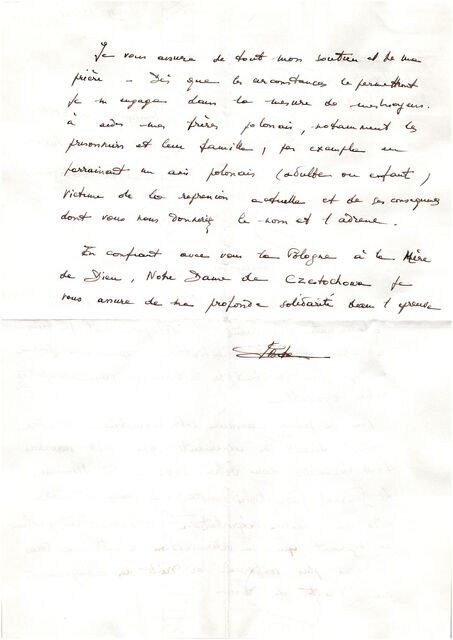 Je vous assure de tout mon soutien et de ma
prière - Dès que les circonstances le permettront
je m engage dans la mesure de mes moyens
à aider mes frères polonais, notamment les
prisonniers et leur famille, par exemple en
parrainant un ami polonais (adulte ou enfant)
victime de la repression actuelle et de ses conséquences
dont vous nous donnerez le nom et l adresse.
En confiant avec vous la Pologne à la Mère
de Dieu, Notre Dame de Czetochowa je
vous assure de ma profonde solidarité dans l epreuve